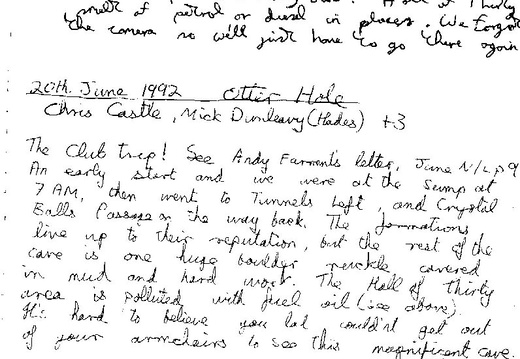 smell of petrol or diesel in places. We forgot
the camera so we'll just have to go there again
20th June 1992 Otter Hole
Chris Castle, Mick Dunleavy (Hades) +3
The Club trip! See Andy Farrant's letter, June N/L p9
An early start and we were at the sump at
7 AM, then went to Tunnels Left, and Crystal
Balls Passage on the way back. The formations
live up to their reputation, but the rest of the
cave is one huge boulder ruckle covered
in mud and hard work. The Hall of Thirty
area is polluted with fuel oil (see above).
It's hard to believe you lot couldn't get out
of your armchairs to see this magnificent cave.